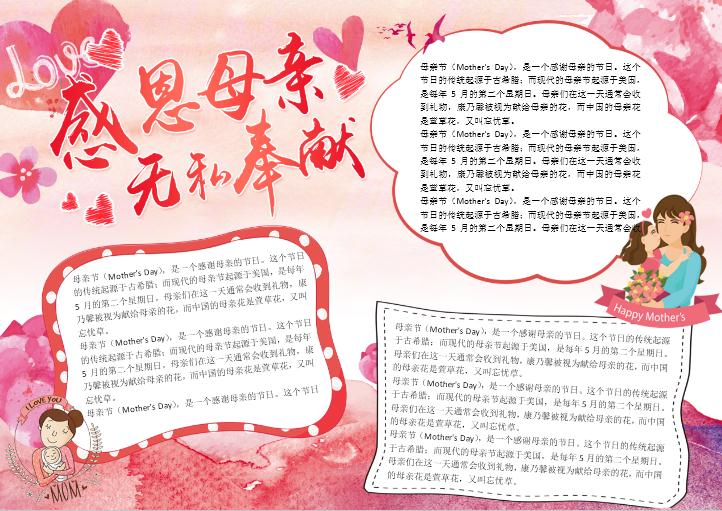 Love
感恩母亲
无私奉献
母亲节（Mother's Day），是一个感谢母亲的节日。这个
节日的传统起源于古希腊；而现代的母亲节起源于美国，
是每年 5 月的第二个星期日。母亲们在这一天通常会收
到礼物，康乃馨被视为献给母亲的花，而中国的母亲花
是萱草花，又叫忘忧草。
母亲节（Mother's Day），是一个感谢母亲的节日。这个
节日的传统起源于古希腊；而现代的母亲节起源于美国，
是每年 5 月的第二个星期日。母亲们在这一天通常会收
到礼物，康乃馨被视为献给母亲的花，而中国的母亲花
是萱草花，又叫忘忧草。
母亲节（Mother's Day），是一个感谢母亲的节日。这个
节日的传统起源于古希腊；而现代的母亲节起源于美国，
是每年 5 月的第二个星期日。母亲们在这一天通常会收
Happy Mother's
母亲节（Mother's Day），是一个感谢母亲的节日。这个节日
的传统起源于古希腊；而现代的母亲节起源于美国，是每年
5 月的第二个星期日。母亲们在这一天通常会收到礼物，康
乃馨被视为献给母亲的花，而中国的母亲花是萱草花，又叫
忘忧草。
母亲节（Mother's Day），是一个感谢母亲的节日。这个节日
的传统起源于古希腊；而现代的母亲节起源于美国，是每年
5 月的第二个星期日。母亲们在这一天通常会收到礼物，康
乃馨被视为献给母亲的花，而中国的母亲花是萱草花，又叫
忘忧草。
母亲节（Mother's Day），是一个感谢母亲的节日。这个节日
I LOVE YOU
MOM
母亲节（Mother's Day），是一个感谢母亲的节日。这个节日的传统起源
于古希腊；而现代的母亲节起源于美国，是每年 5 月的第二个星期日。
母亲们在这一天通常会收到礼物，康乃馨被视为献给母亲的花，而中国
的母亲花是萱草花，又叫忘忧草。
母亲节（Mother's Day），是一个感谢母亲的节日。这个节日的传统起源
于古希腊；而现代的母亲节起源于美国，是每年 5 月的第二个星期日。
母亲们在这一天通常会收到礼物，康乃馨被视为献给母亲的花，而中国
的母亲花是萱草花，又叫忘忧草。
母亲节（Mother's Day），是一个感谢母亲的节日。这个节日的传统起源
于古希腊；而现代的母亲节起源于美国，是每年 5 月的第二个星期日。
母亲们在这一天通常会收到礼物，康乃馨被视为献给母亲的花，而中国
的母亲花是萱草花，又叫忘忧草。